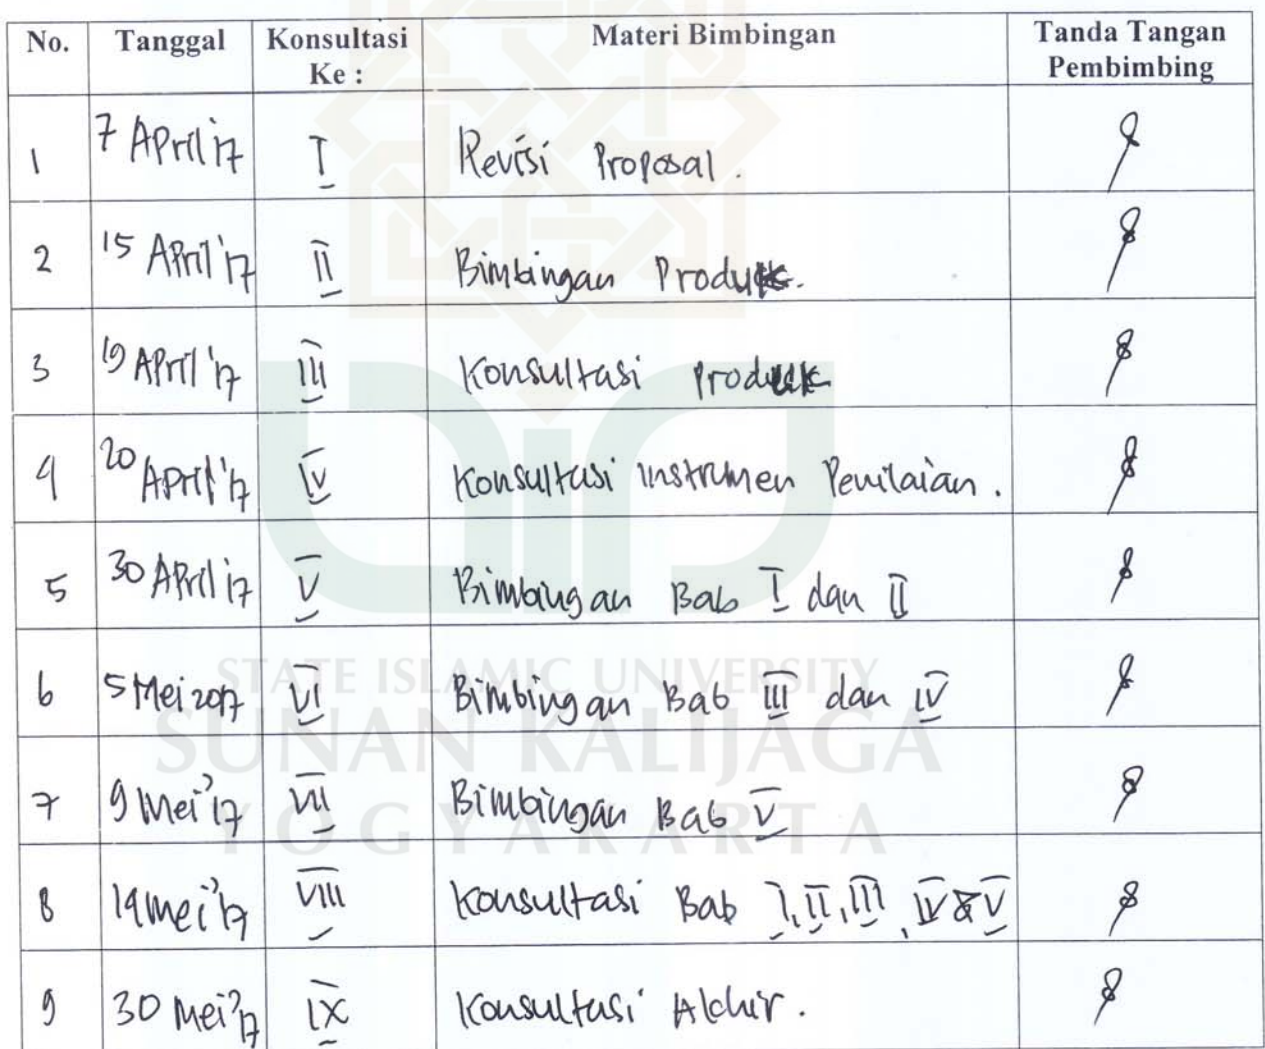 No. Tanggal Konsultasi Ke : Materi Bimbingan Tanda Tangan Pembimbing
1 7 April '17 I Revisi Proposal.
2 15 April '17 II Bimbingan Produk.
3 19 April '17 III Konsultasi Produk
4 20 April '17 IV Konsultasi instrumen Penilaian.
5 30 April '17 V Bimbingan Bab I dan II
6 5 Mei 2017 VI Bimbingan Bab III dan IV
7 9 Mei '17 VII Bimbingan Bab V
8 19 mei '17 VIII Konsultasi Bab I, II, III, IV & V
9 30 Mei '17 IX Konsultasi Akhir.
STATE ISLAMIC UNIVERSITY
SUNAN KALIJAGA
YOGYAKARTA